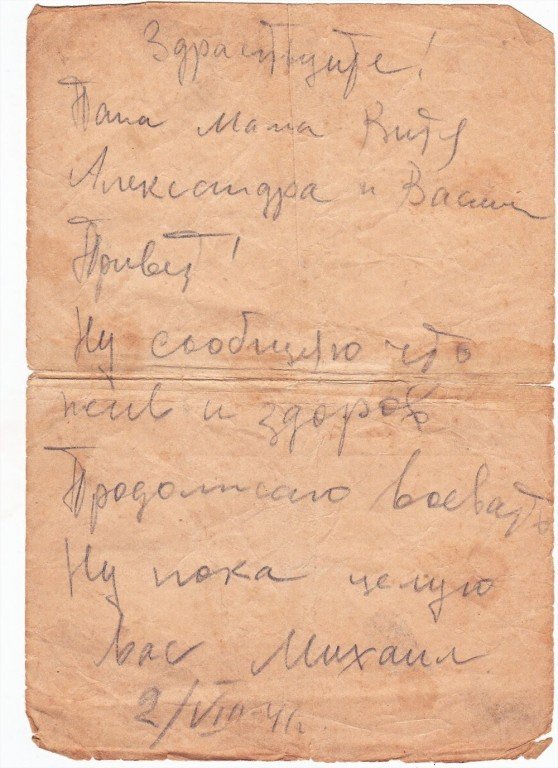 Здраствуйте!
Папа Мама Витя
Александра и Васили
Привет!
Ну сообщяю что
жив и здоров
Продолжаю воевать
Ну пока целую
Вас Михаил
2/VIII-41г.